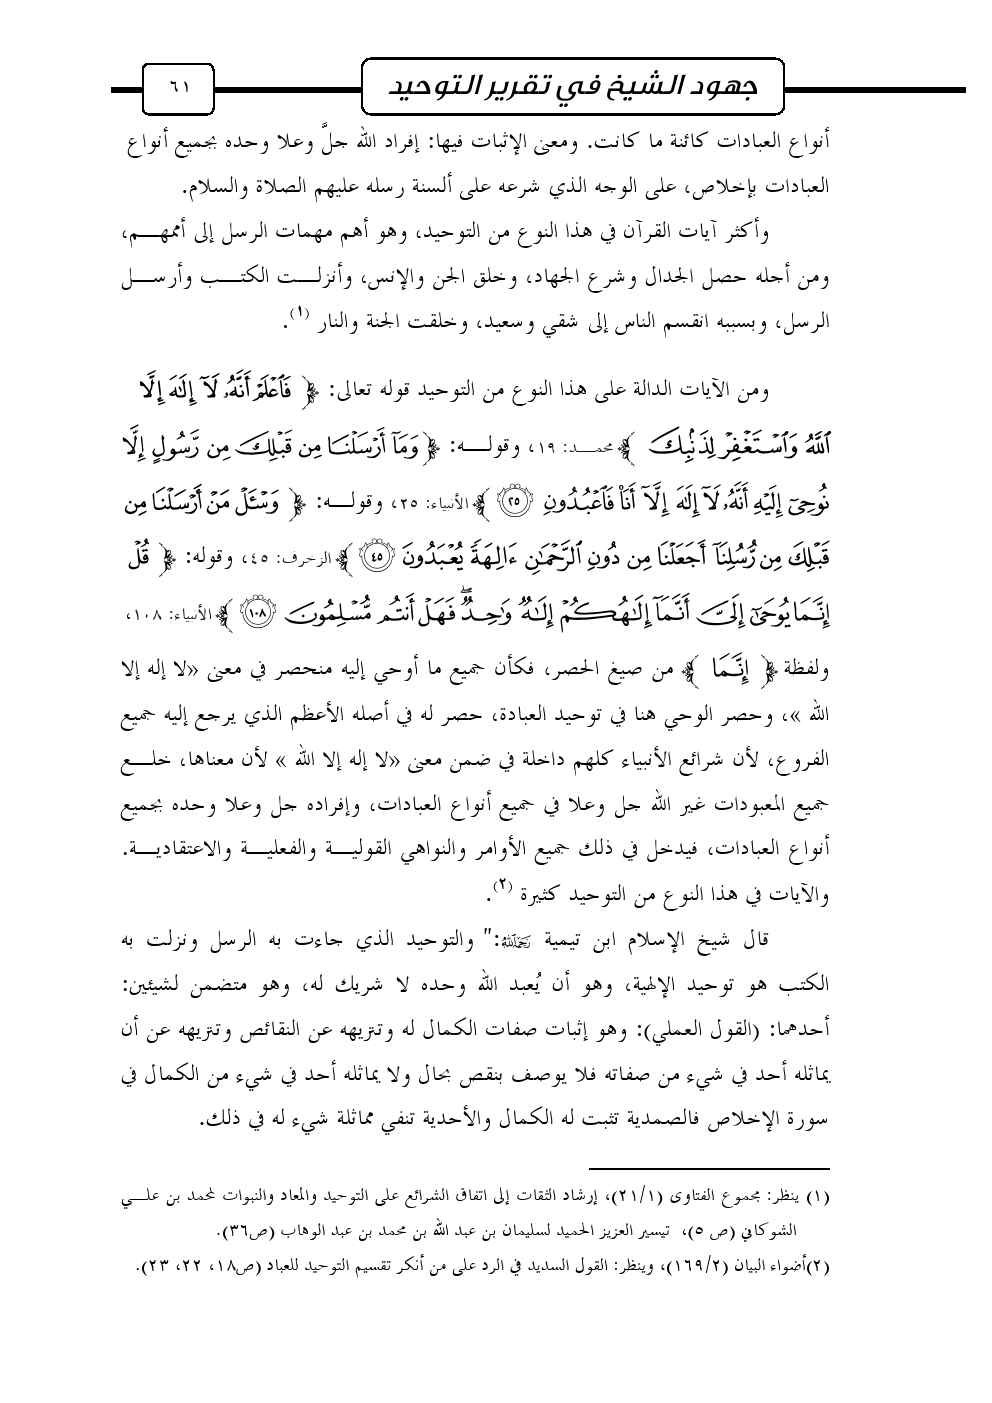 جهود الشيخ في تقرير التوحيد
٦١
أنواع العبادات كائنة ما كانت. ومعنى الإثبات فيها: إفراد الله جلَّ وعلا وحده بجميع أنواع
العبادات بإخلاص، على الوجه الذي شرعه على ألسنة رسله عليهم الصلاة والسلام.
وأكثر آيات القرآن في هذا النوع من التوحيد، وهو أهم مهمات الرسل إلى أممهم،
ومن أجله حصل الجدال وشرع الجهاد، وخلق الجن والإنس، وأنزلت الكتب وأرسل
الرسل، وبسببه انقسم الناس إلى شقي وسعيد، وخلقت الجنة والنار (١).
ومن الآيات الدالة على هذا النوع من التوحيد قوله تعالى: ﴿ فَٱعۡلَمۡ أَنَّهُۥ لَآ إِلَٰهَ إِلَّا
ٱللَّهُ وَٱسۡتَغۡفِرۡ لِذَنۢبِكَ ﴾ محمد: ١٩، وقوله: ﴿ وَمَآ أَرۡسَلۡنَا مِن قَبۡلِكَ مِن رَّسُولٍ إِلَّا
نُوحِيٓ إِلَيۡهِ أَنَّهُۥ لَآ إِلَٰهَ إِلَّآ أَنَا۠ فَٱعۡبُدُونِ ٢٥ ﴾ الأنبياء: ٢٥، وقوله: ﴿ وَسۡـَٔلۡ مَنۡ أَرۡسَلۡنَا مِن
قَبۡلِكَ مِن رُّسُلِنَآ أَجَعَلۡنَا مِن دُونِ ٱلرَّحۡمَٰنِ ءَالِهَةٗ يُعۡبَدُونَ ٤٥ ﴾ الزخرف: ٤٥، وقوله: ﴿ قُلۡ
إِنَّمَا يُوحَىٰٓ إِلَيَّ أَنَّمَآ إِلَٰهُكُمۡ إِلَٰهٞ وَٰحِدٞۖ فَهَلۡ أَنتُم مُّسۡلِمُونَ ١٠٨ ﴾ الأنبياء: ١٠٨،
ولفظة ﴿ إِنَّمَا ﴾ من صيغ الحصر، فكأن جميع ما أوحي إليه منحصر في معنى «لا إله إلا
الله »، وحصر الوحي هنا في توحيد العبادة، حصر له في أصله الأعظم الذي يرجع إليه جميع
الفروع، لأن شرائع الأنبياء كلهم داخلة في ضمن معنى «لا إله إلا الله » لأن معناها، خلع
جميع المعبودات غير الله جل وعلا في جميع أنواع العبادات، وإفراده جل وعلا وحده بجميع
أنواع العبادات، فيدخل في ذلك جميع الأوامر والنواهي القولية والفعلية والاعتقادية.
والآيات في هذا النوع من التوحيد كثيرة (٢).
قال شيخ الإسلام ابن تيمية رحمه الله:" والتوحيد الذي جاءت به الرسل ونزلت به
الكتب هو توحيد الإلهية، وهو أن يُعبد الله وحده لا شريك له، وهو متضمن لشيئين:
أحدهما: (القول العملي): وهو إثبات صفات الكمال له وتنزيهه عن النقائص وتنزيهه عن أن
يماثله أحد في شيء من صفاته فلا يوصف بنقص بحال ولا يماثله أحد في شيء من الكمال في
سورة الإخلاص فالصمدية تثبت له الكمال والأحدية تنفي مماثلة شيء له في ذلك.
(١) ينظر: مجموع الفتاوى (٢١/١)، إرشاد الثقات إلى اتفاق الشرائع على التوحيد والمعاد والنبوات لمحمد بن علي
الشوكاني (ص ٥)، تيسير العزيز الحميد لسليمان بن عبد الله بن محمد بن عبد الوهاب (ص٣٦).
(٢)أضواء البيان (١٦٩/٢)، وينظر: القول السديد في الرد على من أنكر تقسيم التوحيد للعباد (ص١٨، ٢٢، ٢٣).